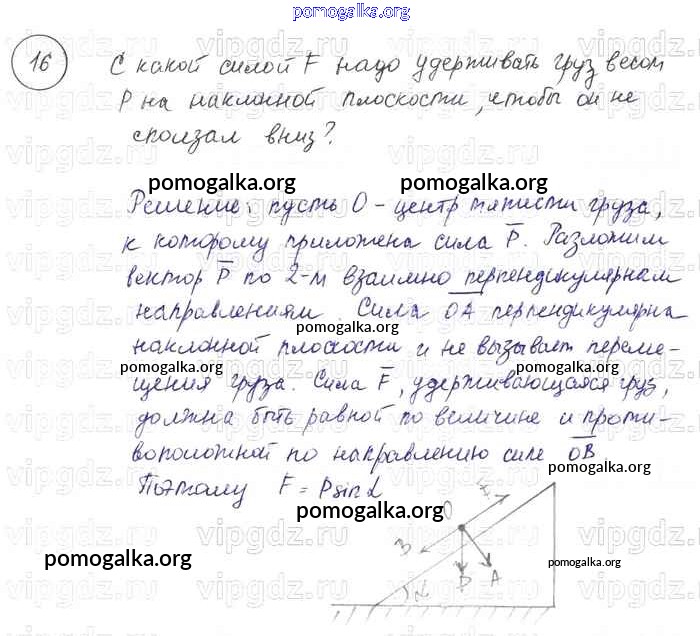 pomogalka.org
16 С какой силой F надо удерживать груз весом
P на наклонной плоскости, чтобы он не
сползал вниз?
pomogalka.org pomogalka.org
Решение: пусть O - центр тяжести груза,
к которому приложена сила P̅. Разложим
вектор P̅ по 2-м взаимно перпендикулярным
pomogalka.org
направлениям. Сила O̅A̅ перпендикулярна
pomogalka.org
наклонной плоскости и не вызывает переме-
pomogalka.org pomogalka.org
щения груза. Сила F̅, удерживающаяся груз,
должна быть равной по величине и проти-
воположной по направлению силе O̅B̅
pomogalka.org
Поэтому F = P sin α
F
O
pomogalka.org
B
pomogalka.org
A
α
pomogalka.org